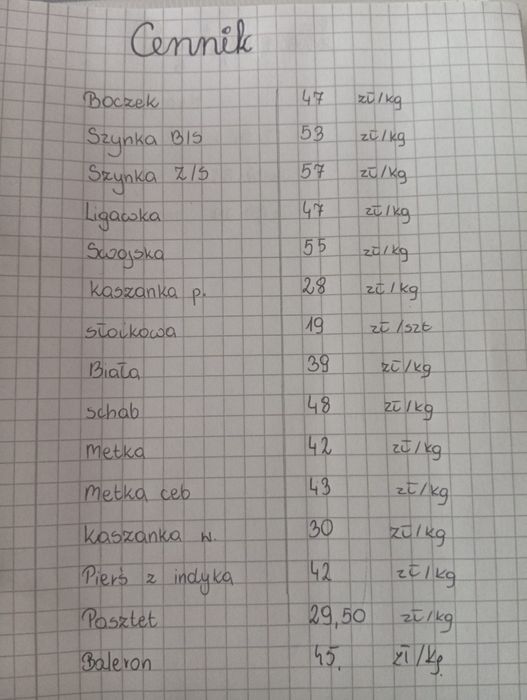 Cennik
Boczek 47 zł/kg
Szynka B/S 53 zł/kg
Szynka Z/S 57 zł/kg
Ligawka 47 zł/kg
Swojska 55 zł/kg
Kaszanka p. 28 zł/kg
słoikowa 19 zł/szt
Biała 39 zł/kg
schab 48 zł/kg
metka 42 zł/kg
metka ceb 43 zł/kg
kaszanka w. 30 zł/kg
Pierś z indyka 42 zł/kg
Pasztet 29,50 zł/kg
Baleron 45, zł/kg